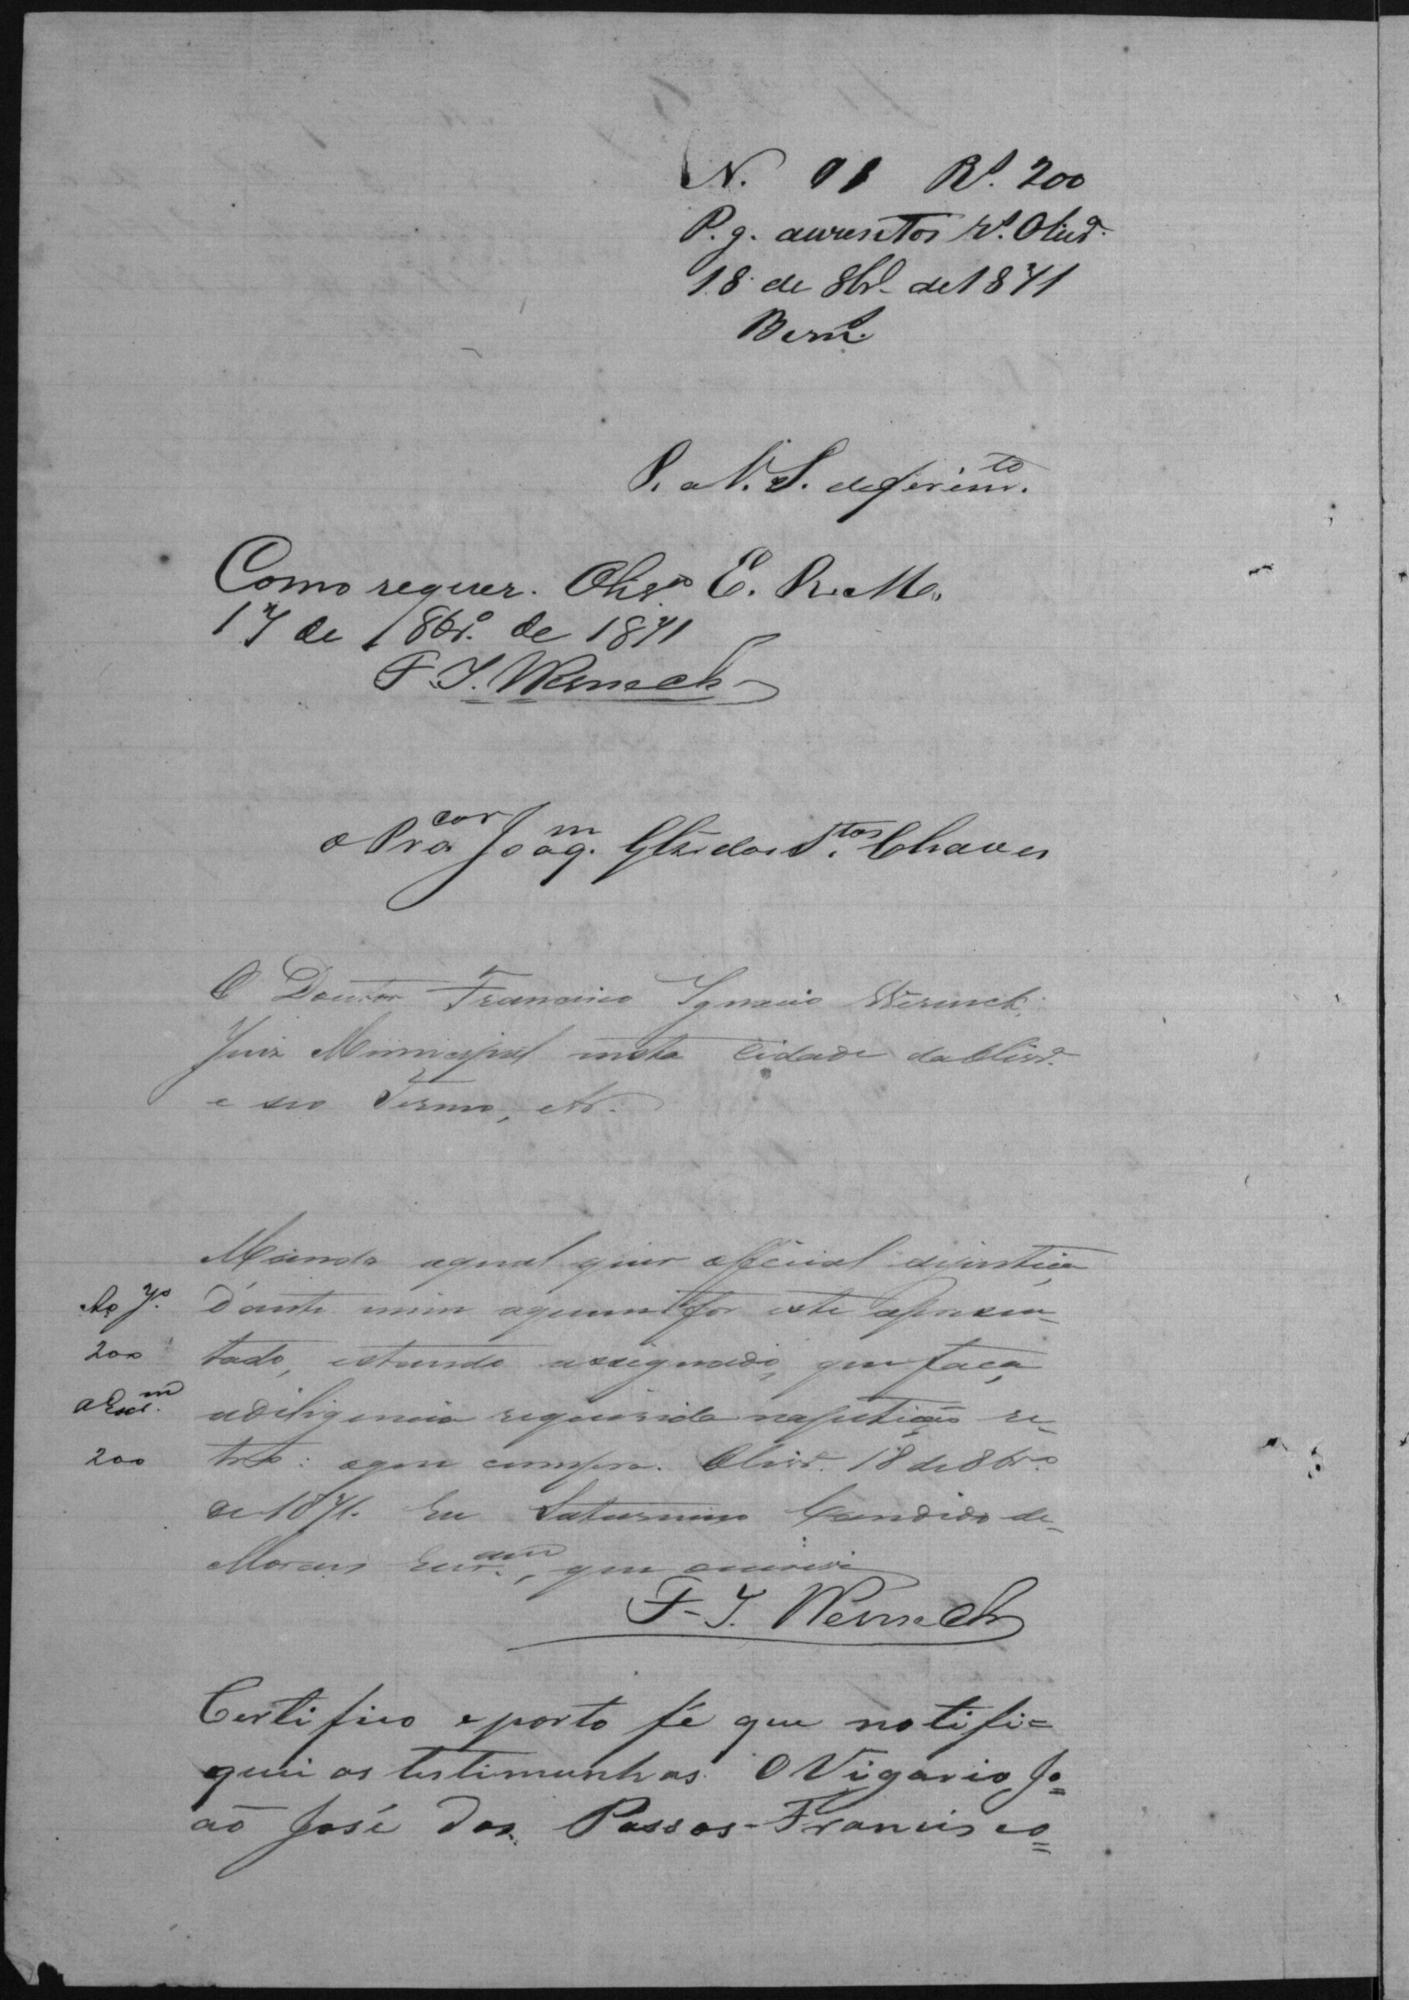 N. 91 Rs. 200
P. g. duzentos rs. Olivª.
18 de 8brº de 1871
P. a V. S. deferimto.
Como requer. Olivª E. R. Mce.
17 de 8brº. de 1871
F. I. Werneck
o Procor Joaqm. dos Stos Chaves
O Doutor Francisco Ignacio Werneck,
Juiz Municipal nesta Cidade da Olivª.
e seo Termo, etc.
Mando aqual quer official dejustiça
d'ante mim aquem for este apresen-
tado, estando assignado, que faça
adiligencia requerida napetição re-
tro: oque cumpra. Olivª. 18 de 8brº
de 1871. Eu Saturnino Candido de
Moraes Escram., que escrevi
Ao Jº.
200
ao Escm.
200
F. I. Werneck
Certifico eporto fé que notifi=
quei as testimunhas O Vigario Jo=
aõ José dos Passos - Francisco=